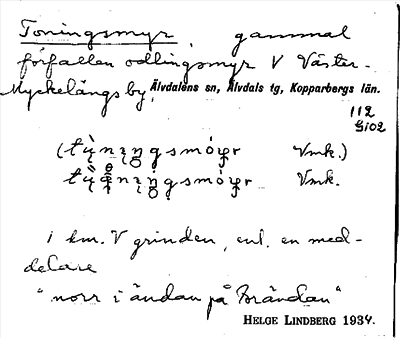 Toningsmyr, gammal
förfallen odlingsmyr V Väster-
Myckelängs by, Älvdalens sn, Älvdals tg, Kopparbergs län.
112
Gi02
Vmk.)
Vmk.
1 km. V grinden, enl. en med-
delare
"norr i ändan på Brändan"
HELGE LINDBERG 1934.